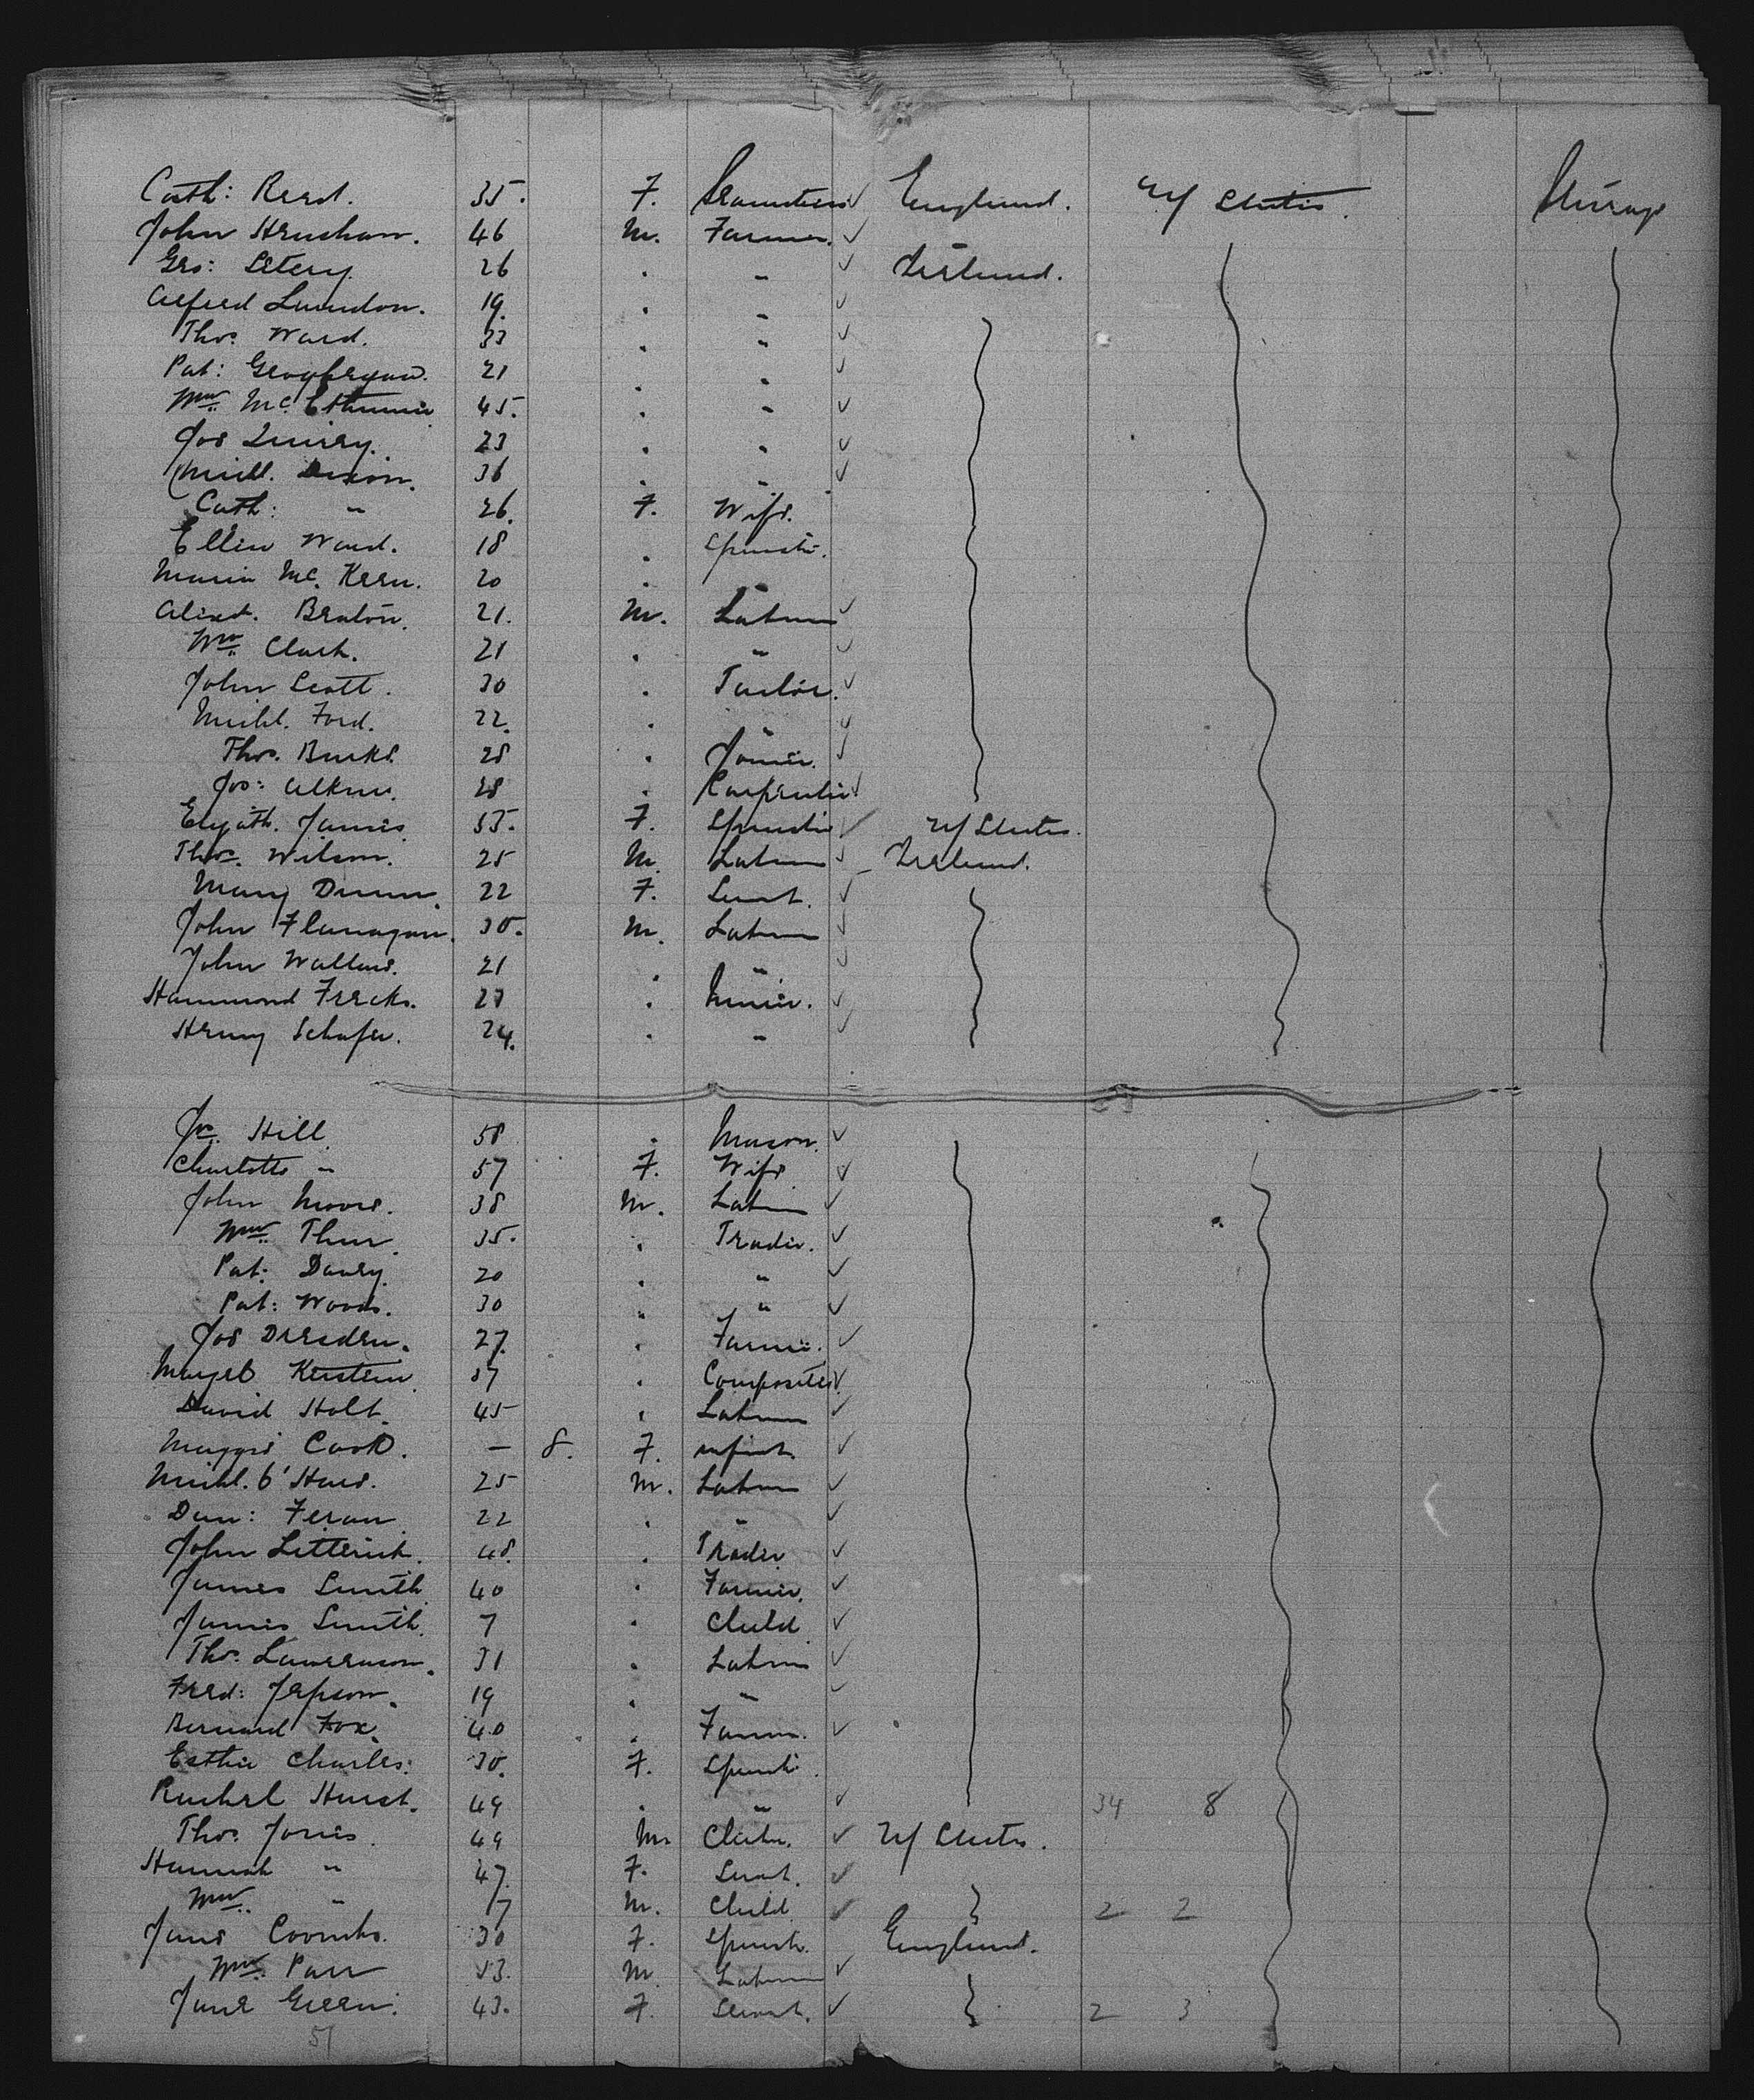 Cath: Reed. 35. F. England. U/ States.
John Henshaw. 46 M. Farmer.
Geo: Setery. 26 . " Ireland.
Alfred Lumdon. 19. . "
Thos. Ward. 33 . "
Pat: Geoghegan. 21 . "
Wm. Mc. 45. . "
Jos Quirey. 23 . "
Michl. Dixon. 36 . "
Cath: " 26. F. Wife.
Ellen Ward. 18 . Spinster.
Maria Mc. Keen. 20 . "
Alexd. Braton. 21. M. Labourer
Wm. Clark. 21 . "
John Scott. 30 . Tailor.
Michl. Ford. 22. . "
Thos. Burke. 28 . Joiner.
Jos: Alken. 28 . Carpenter
Elizath. James 35. F. Spinster U/ States.
Thos. Wilson. 25 M. Labourer Ireland.
Mary Dunn. 22 F. Servt.
John Flanagan. 30. M. Labourer
John Wallace. 21 . "
Hammond Freeks. 27 . Miner.
Henry Schafer. 24. . "
Jos. Hill 58 . Mason.
Charlotte " 57 F. Wife
John Moore. 38 M. Labr
Wm. Thur. 35. . Trader.
Pat: Davey. 20 . "
Pat: Woods. 30 " "
Jos Dresden. 27. . Farmer.
Kerstein . Compositor
David Holt. 45 . Labourer
Maggie Cook. — 8. F. infant.
Michl. O'Hare. 25 M. Labourer
Dan: Feran 22 . "
John Litterick. 48. . Trader
James Smith 40 . Farmer.
James Smith. 7 . Child
Thos. Lawrenson. 31 . Labourer
Fred: Jepson. 19 . "
Bernard Fox. 40 . Farmer.
Esther Charles. 30. F. Spinster.
Rachel Hurst. 49 . " 34 8
Thos. Jones. 49 M. U/ States.
Hannah " 47. F. Servt.
Wm. " 7 M. Child 2 2
Jane Coombs. 30 F. Spinster. England.
Wm. Parr 53. M. Labourer
Jane Green. 43. F. Servant. 2 3
51